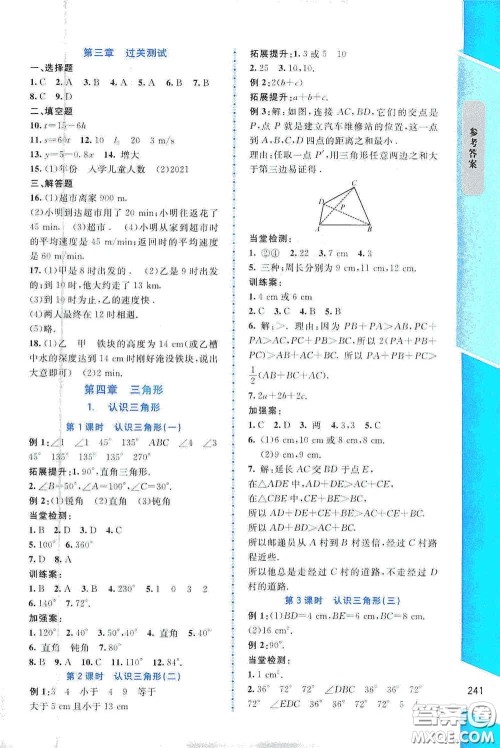 第三章 过关测试
一、选择题
1. C 2. D 3. C 4. D 5. A 6. B 7. B
8. C 9. D
二、填空题
10. x=15-6h
11. s=6x 12. 10 L 20 s m
13. y=5-0.8x 14. 增大
15. (1)年份 入学儿童人数 (2)2021
三、解答题
16. (1)超市离家 900 m.
(2)小明到达超市用了 20 min;小明往返花了
45 min.
(3)小明离家出发后 20 min 至 30 min 内可能
(4)小明从家到超市时的平
均速度是 45 m/min;返回时的平均速度是
60 m/min.
17. (1)甲是 8 时出发的. (2)乙是 9 时出发的;
到 10 时,他大约行驶了 13 km.
(3)到 10 时为止,乙的速度快.
(4)两人最终在 12 时相遇.
(5)略.
18. (1)乙 甲 铁块的高度为 14 cm(或乙槽
中水的深度达到 14 cm 时刚好淹没铁块,说
出大意即可) (2)2 min.
第四章 三角形
1. 认识三角形
第 1 课时 认识三角形(一)
例 1:∠1 ∠1 45° 135° ABC ∠4 ∠3
45° 135° 135° 270°
拓展提升:1. 90°,直角三角形.
2. ∠B=50°,∠C=70°.
例 2:(1)锐角 (2)直角 (3)钝角
当堂检测:
1. B 2. A 3. D 4. D
5. 100° 6. 360°
训练案:
1. B 2. A 3. D 4. C 5. 1 0 3 2
6. 140° 7. 72°
加强案:
1. 120° 2. 54° 3. 40° 4. 20° 60° 100°
5. 直角 钝角 6. 60°
7. 82° 8. C 9. B 10. B
第 2 课时 认识三角形(二)
例 1:3 4 小于 4 9 等于
大于 5 cm 且小于 13 cm
拓展提升:1. 3 或 5 10
2. 25 3. 10,10.
例 2:2(b+c)
拓展提升:a+b+c.
例 3:解:如图,连接 AC,BD,它们的交点是
P,点 P 就是建立汽车维修站的位置,这一点
到点 A,B,C,D 的距离之和最小.
理由:任取一点 P′,用三角形任意两边之和大
于第三边易证得.
D
C
P
A
B
当堂检测:
1. ②④ 2. 22 3. 7 cm 4. 3
5. 三种;周长分别为 9 cm,11 cm,12 cm.
训练案:
1. 4 cm 或 6 cm
2. C 3. C 4. B 5. B
6. 解:>. 理由:因为 PB+PA>AB,PC+
PA>AC,PB+PC>BC,所以 PB+PA+
PC+PA+PB+PC>AB+AC+BC,即
2(PA+PB+PC)>AB+AC+BC,PA+PB+PC>
1/2(AB+AC+BC).
7. 2a+2b+2c.
加强案:
1. C 2. B 3. C 4. 两 5. 4
6. (1)9 cm,9 cm 或 6 cm,12 cm.
(2)9 cm,9 cm.
7. 解:延长 AC 交 BD 于点 E,
在△ADE 中,AD+DE>AE,
在△BCE 中,CE+BE>BC,
所以 AD+DE+CE+BE>AE+BC.
所以 AD+BD>AC+BC.
所以邮递员从 A 到 B 送信,经过 C 村的道路
路程近些.
所以他总是走经过 C 村的道路,不走经过 D
村的道路.
第 3 课时 认识三角形(三)
例 1:(1)BD=4 cm;BE=6 cm,BC=8 cm.
(2)16 cm².
例 2:90°.
当堂检测:
1. 1 cm²
2. 36° 72° 72° ∠ABD 36° 72°
∠BDC ∠C 36° 36° 72°
参考答案
241
答案圈
MXQE.COM